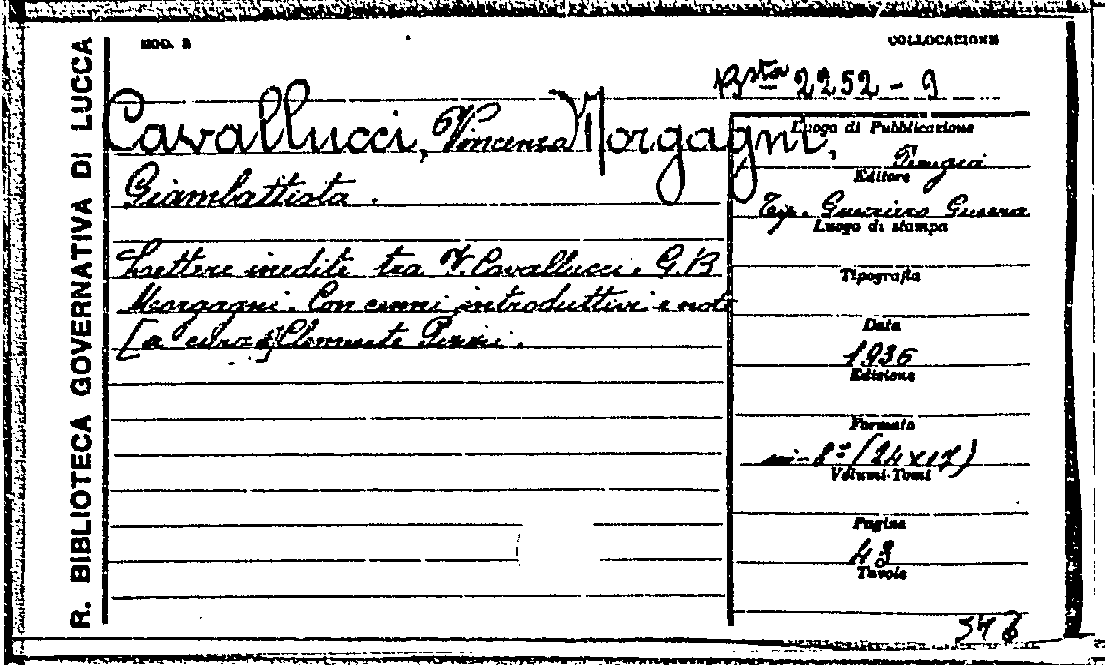 R. BIBLIOTECA GOVERNATIVA DI LUCCA
MOD. B
COLLOCAZIONE
Bsta 2252 - 9
Cavallucci, Vincenzo Morgagni,
Giambattista.
Lettere inedite tra V. Cavallucci e G. B.
Morgagni. Con cenni introduttivi e note
[a cura di] Clemente
Luogo di Pubblicazione
Perugia
Editore
Tip. Guerriero Guerra
Luogo di stampa
Tipografia
Data
1936
Edizione
Formato
in-8° (24x17)
Volumi-Tomi
Pagine
43
Tavole
346